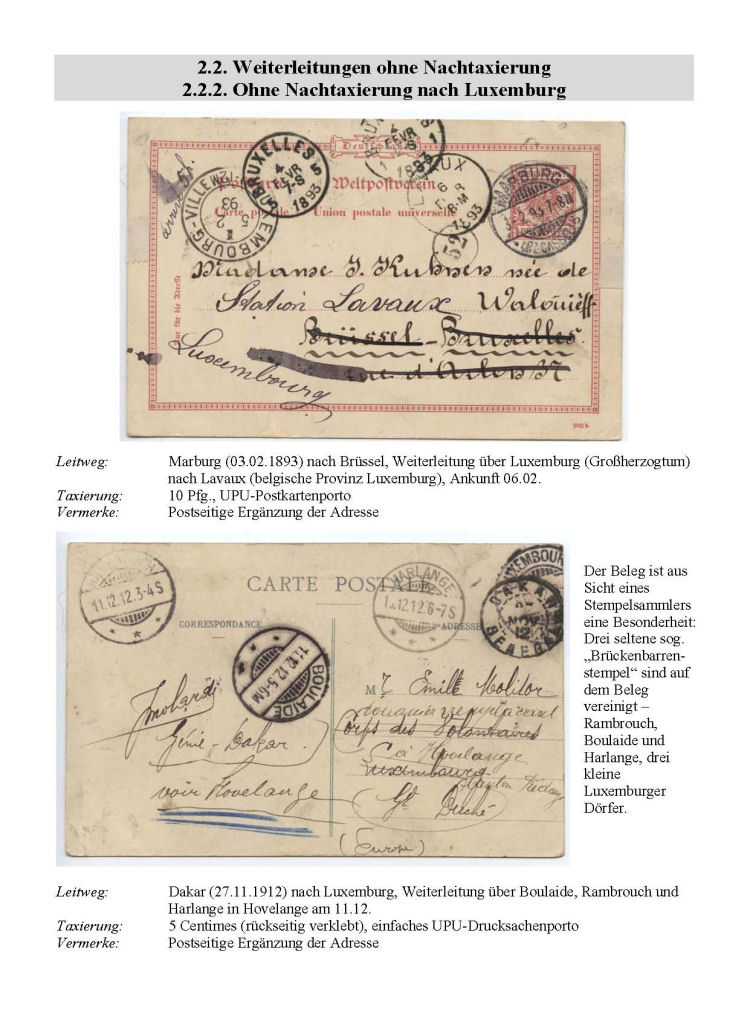 2.2. Weiterleitungen ohne Nachtaxierung
2.2.2. Ohne Nachtaxierung nach Luxemburg
Deutschland
Postkarte Weltpostverein
Carte postale Union postale universelle
BRUXELLES 5
4
FEVR
7-S
1893
1893
LUXEMBOURG-VILLE
5
2
93
MARBURG
52
Nur für die Adresse
Madame J. Kuhnen née de
Station Lavaux
Brüssel - Bruxelles
rue d'Arlon 37
Luxembourg
992 b
Leitweg: Marburg (03.02.1893) nach Brüssel, Weiterleitung über Luxemburg (Großherzogtum)
nach Lavaux (belgische Provinz Luxemburg), Ankunft 06.02.
Taxierung: 10 Pfg., UPU-Postkartenporto
Vermerke: Postseitige Ergänzung der Adresse
CARTE POSTALE
CORRESPONDANCE
ADRESSE
11.12.12.3-4S
HARLANGE
12.12 6-7S
LUXEMBOURG
DAKAR
SENEGAL
11.12.12.5-6M
BOULAIDE
Mr Emile Molitor
Corps des Volontaires
à Hovelange
Luxembourg
Gd Duché
(Europe)
Génie-Dakar
voir Hovelange
Der Beleg ist aus
Sicht eines
Stempelsammlers
eine Besonderheit:
Drei seltene sog.
„Brückenbarren-
stempel“ sind auf
dem Beleg
vereinigt –
Rambrouch,
Boulaide und
Harlange, drei
kleine
Luxemburger
Dörfer.
Leitweg: Dakar (27.11.1912) nach Luxemburg, Weiterleitung über Boulaide, Rambrouch und
Harlange in Hovelange am 11.12.
Taxierung: 5 Centimes (rückseitig verklebt), einfaches UPU-Drucksachenporto
Vermerke: Postseitige Ergänzung der Adresse